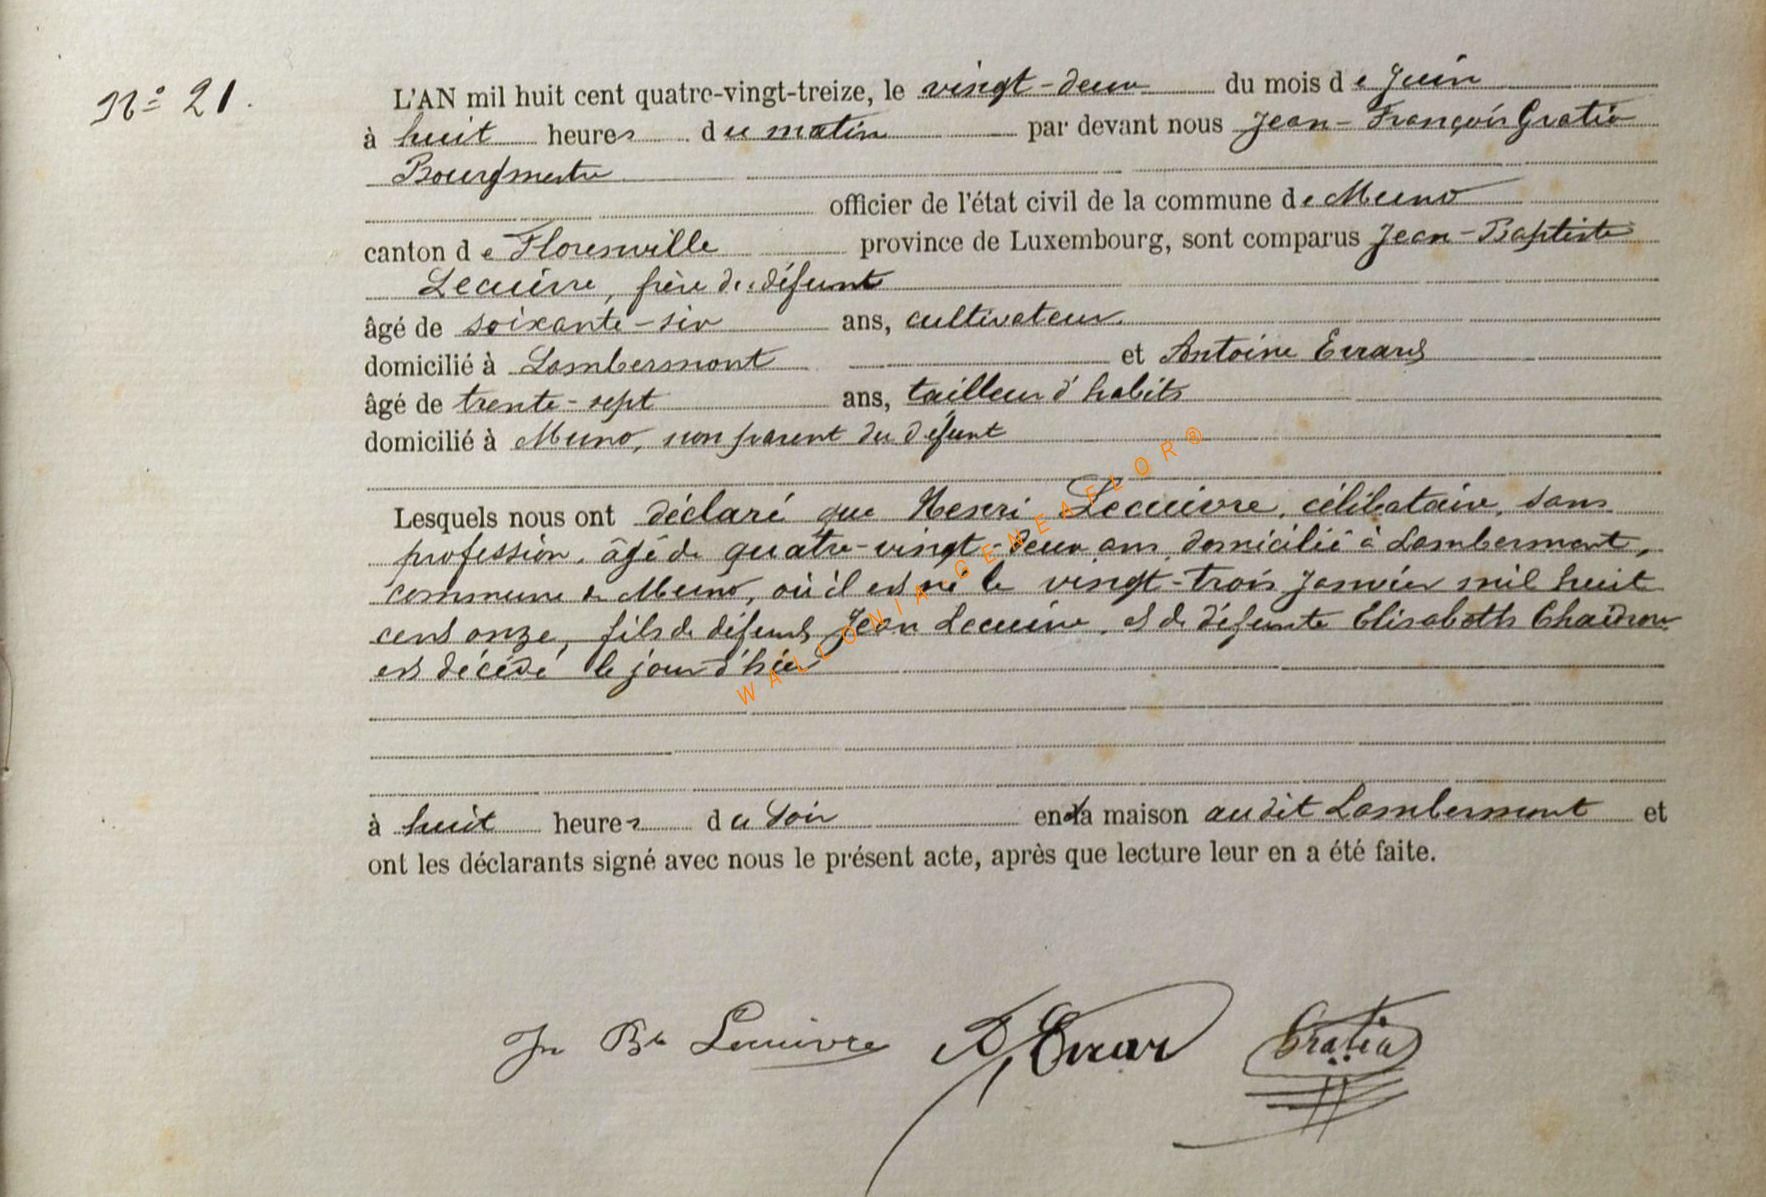 N° 21.
L'AN mil huit cent quatre-vingt-treize, le vingt-deux du mois de Juin
à huit heures du matin par devant nous Jean-François Gratia
Bourgmestre
officier de l'état civil de la commune de Muno
canton de Florenville province de Luxembourg, sont comparus Jean-Baptiste
Lecuivre, frère du défunt
âgé de soixante-six ans, cultivateur
domicilié à Lambermont et Antoine Errard
âgé de trente-sept ans, tailleur d'habits
domicilié à Muno, non parent du défunt
Lesquels nous ont déclaré que Henri Lecuivre, célibataire, sans
profession, âgé de quatre-vingt-deux ans, domicilié à Lambermont,
commune de Muno, où il est né le vingt-trois Janvier mil huit
cent onze, fils de défunts Jean Lecuivre, et de défunte Elisabeth Chaidron
est décédé le jour d'hier
WALLONIA-GENEAFLOR®
à huit heures du soir en la maison audit Lambermont et
ont les déclarants signé avec nous le présent acte, après que lecture leur en a été faite.
Jn Bte Lecuivre A, Errar Gratia